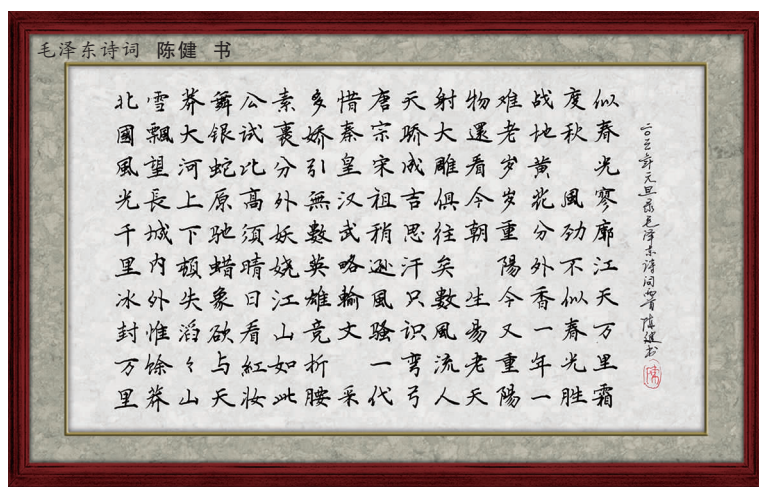 毛泽东诗词 陈健 书
北國風光千里冰封万里
雪飄望長城内外惟馀莽
莽大河上下顿失滔々山
舞银蛇原驰蜡象欲与天
公试比高须晴日看紅妆
素裹分外妖娆江山如此
多娇引無數英雄竞折腰
惜秦皇汉武略输文 采
唐宗宋祖稍逊風骚一代
天骄成吉思汗只识弯弓
射大雕俱往矣數風流人
物還看今朝 生易老天
难老岁岁重陽今又重陽
战地黄花分外香一年一
度秋 風劲不似春光胜
似春光寥廓江天万里霜
年元旦录毛泽东诗词两首 陈健书